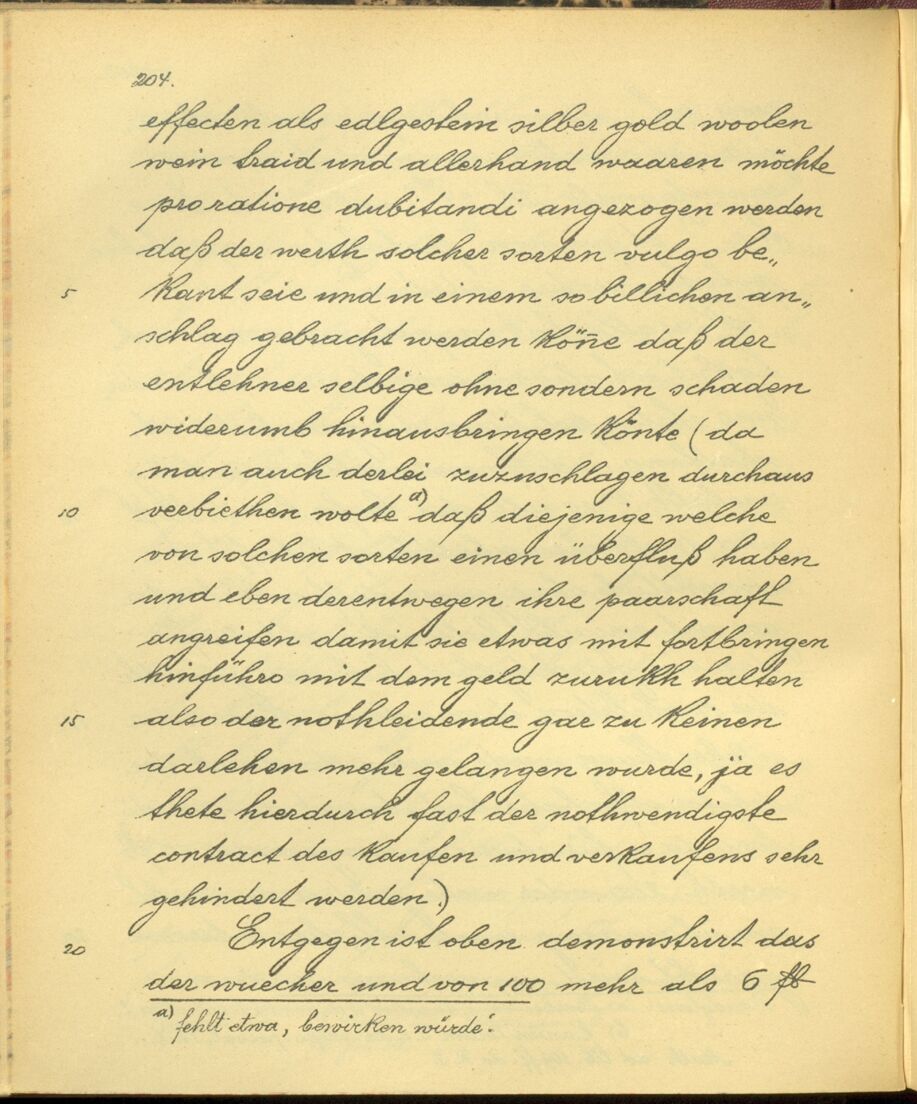 204.
effecten als edlgestein silber gold woolen
wein traid und allerhand waaren möchte
pro ratione dubitandi angezogen werden
daß der werth solcher sorten vulgo be„
5 kant seie und in einem so billichen an„
schlag gebracht werden kön̄e daß der
entlehner selbige ohne sondern schaden
widerumb hinausbringen könte (da
man auch derlei zuzuschlagen durchaus
10 verbiethen wolte a) daß diejenige welche
von solchen sorten einen überfluß haben
und eben derentwegen ihre paarschaft
angreifen damit sie etwas mit fortbringen
hinführo mit dem geld zurukh halten
15 also der nothleidende gar zu keinen
darlehen mehr gelangen wurde, ja es
thete hierdurch fast der nothwendigste
contract des kaufen und verkaufens sehr
gehindert werden.)
20 Entgegen ist oben demonstrirt das
der wuecher und von 100 mehr als 6 fl
a) fehlt etwa, bewirken würde'.